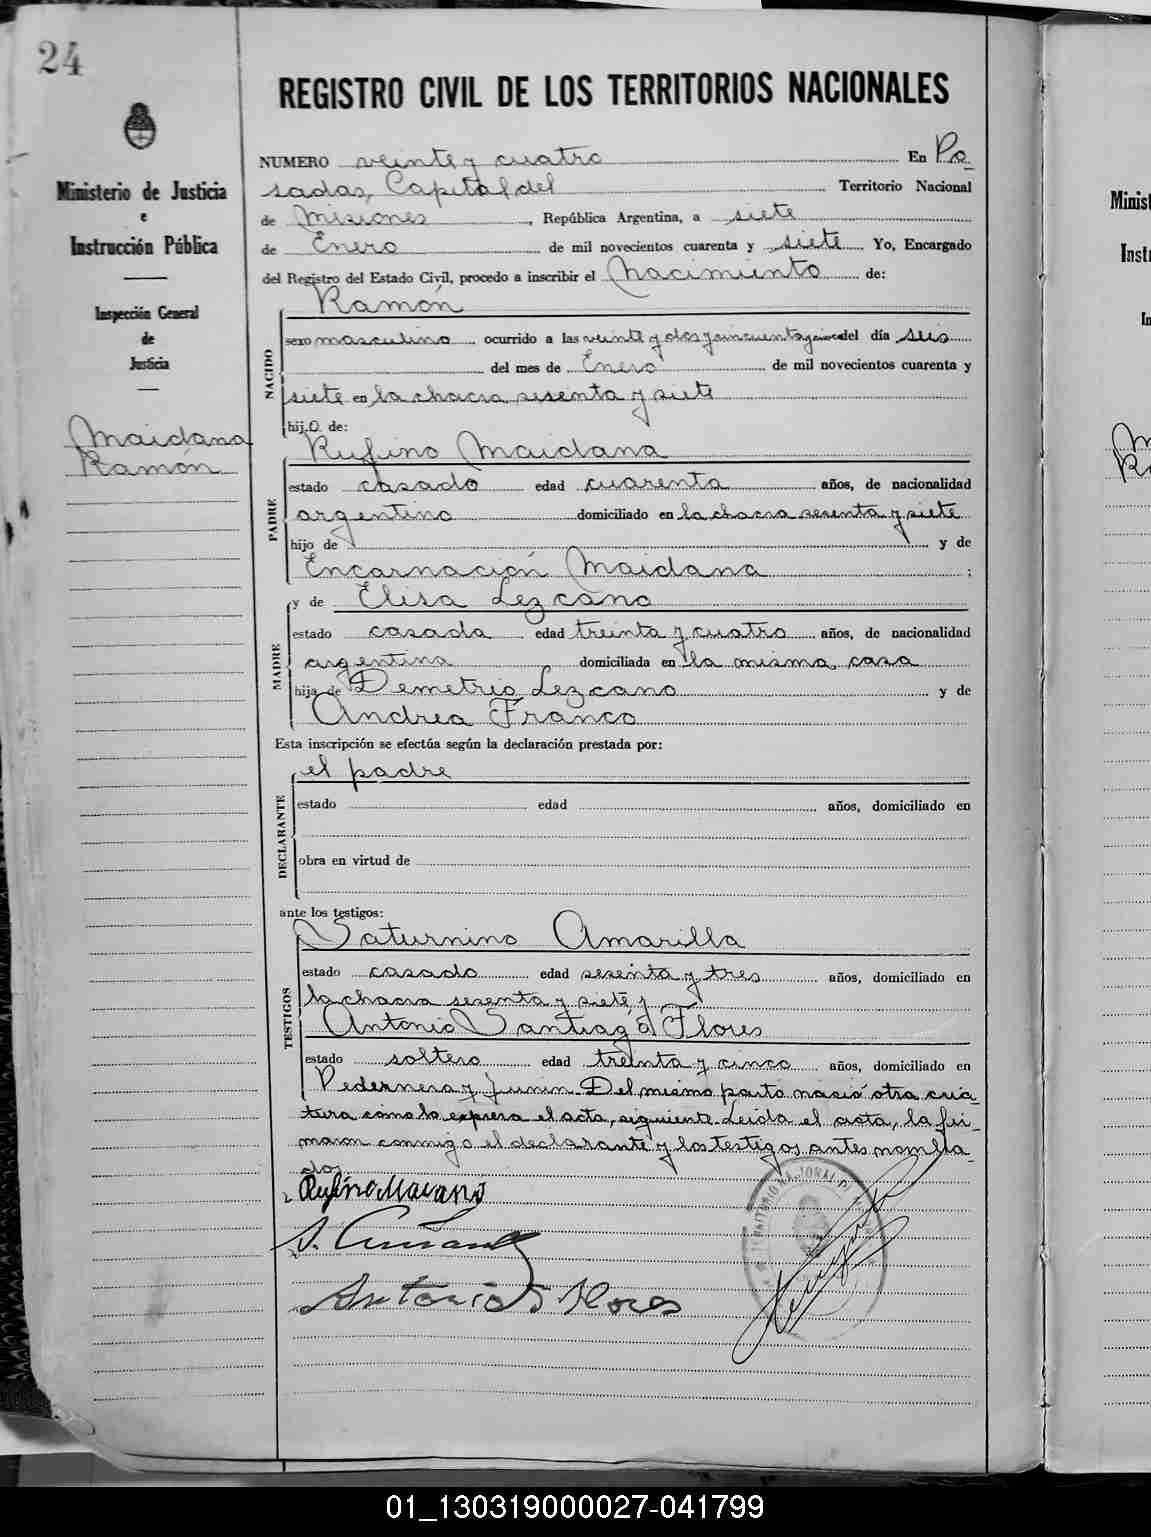 24
Ministerio de Justicia
e
Instrucción Pública
Inspección General
de
Justicia
Maidana
Ramón
REGISTRO CIVIL DE LOS TERRITORIOS NACIONALES
NUMERO veinte y cuatro En Po
sadas, Capital del Territorio Nacional
de Misiones, República Argentina, a siete
de Enero de mil novecientos cuarenta y siete Yo, Encargado
del Registro del Estado Civil, procedo a inscribir el Nacimiento de:
Ramón
NACIDO
sexo masculino ocurrido a las veinte y dos y cincuenta y cinco del día seis
del mes de Enero de mil novecientos cuarenta y
siete en la chacra sesenta y siete
hij.o. de:
Rufino Maidana
PADRE
estado casado edad cuarenta años, de nacionalidad
argentino domiciliado en la chacra sesenta y siete
hijo de y de
Encarnación Maidana ;
y de Elisa Lezcano
MADRE
estado casada edad treinta y cuatro años, de nacionalidad
argentina domiciliada en la misma casa
hija de Demetrio Lezcano y de
Andrea Franco
Esta inscripción se efectúa según la declaración prestada por:
el padre
DECLARANTE
estado edad años, domiciliado en
obra en virtud de
ante los testigos:
Saturnino Amarilla
TESTIGOS
estado casado edad sesenta y tres años, domiciliado en
la chacra sesenta y siete y
Antonio Santiago Flores
estado soltero edad treinta y cinco años, domiciliado en
Pedernera y Junin. Del mismo parto nació otra cria-
tura como lo expresa el acta, siguiente. Leida el acta, la fir-
maron conmigo el declarante y los testigos antes nombra-
dos
Rufino Maidana
Antonio S Flores
01_130319000027-041799